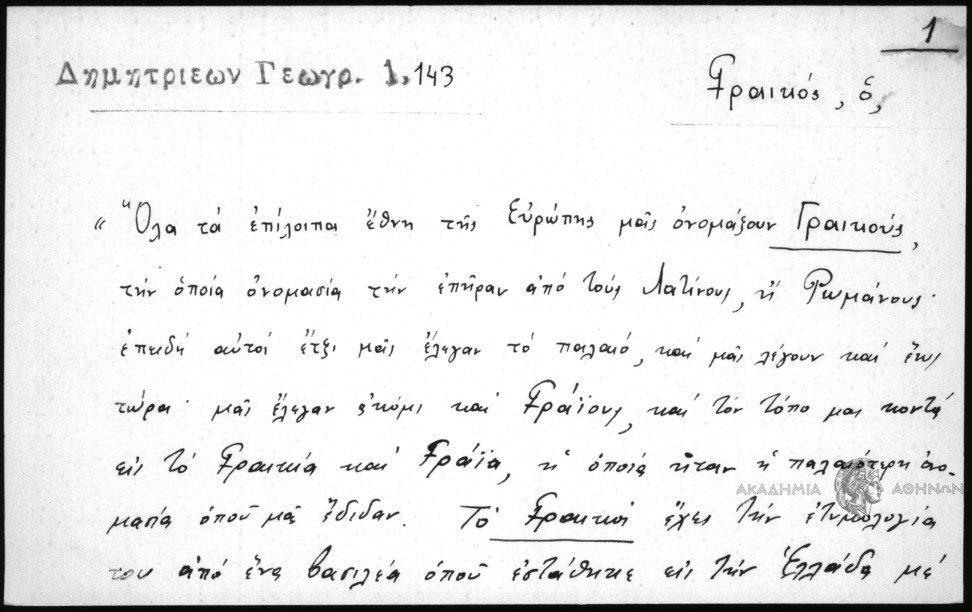 1
Δημητριεων Γεωγρ. 1,143
Γραικός, ὁ,
« Ὅλα τά ἐπίλοιπα ἔθνη τῆς Εὐρώπης μᾶς ὀνομάζουν Γραικούς,
τήν ὁποία ὀνομασία τήν ἐπῆραν ἀπό τούς Λατίνους, ἤ Ρωμάνους·
ἐπειδή αὐτοί ἔτζι μᾶς ἔλεγαν τό παλαιό, καί μᾶς λέγουν καί ἕως
τώρα· μᾶς ἔλεγαν ἀκόμι καί Γραΐους, καί τόν τόπο μας κοντά
εἰς τό Γραικία καί Γραῖα, ἡ ὁποία ἦταν ἡ παλαιότερη ὀνο-
μασία ὁποῦ μᾶς ἔδιδαν. Τό Γραικοί ἔχει τήν ἐτυμολογία
του ἀπό ἕνα βασιλέα ὁποῦ ἐστάθηκε εἰς τήν Ἑλλάδα μέ
ΑΚΑΔΗΜΙΑ ΑΘΗΝΩΝ